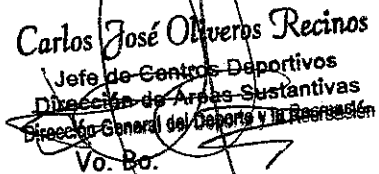 Carlos José Oliveros Recinos
Jefe de Centros Deportivos
Dirección de Areas Sustantivas
Dirección General del Deporte y la Recreación
Vo. Bo.